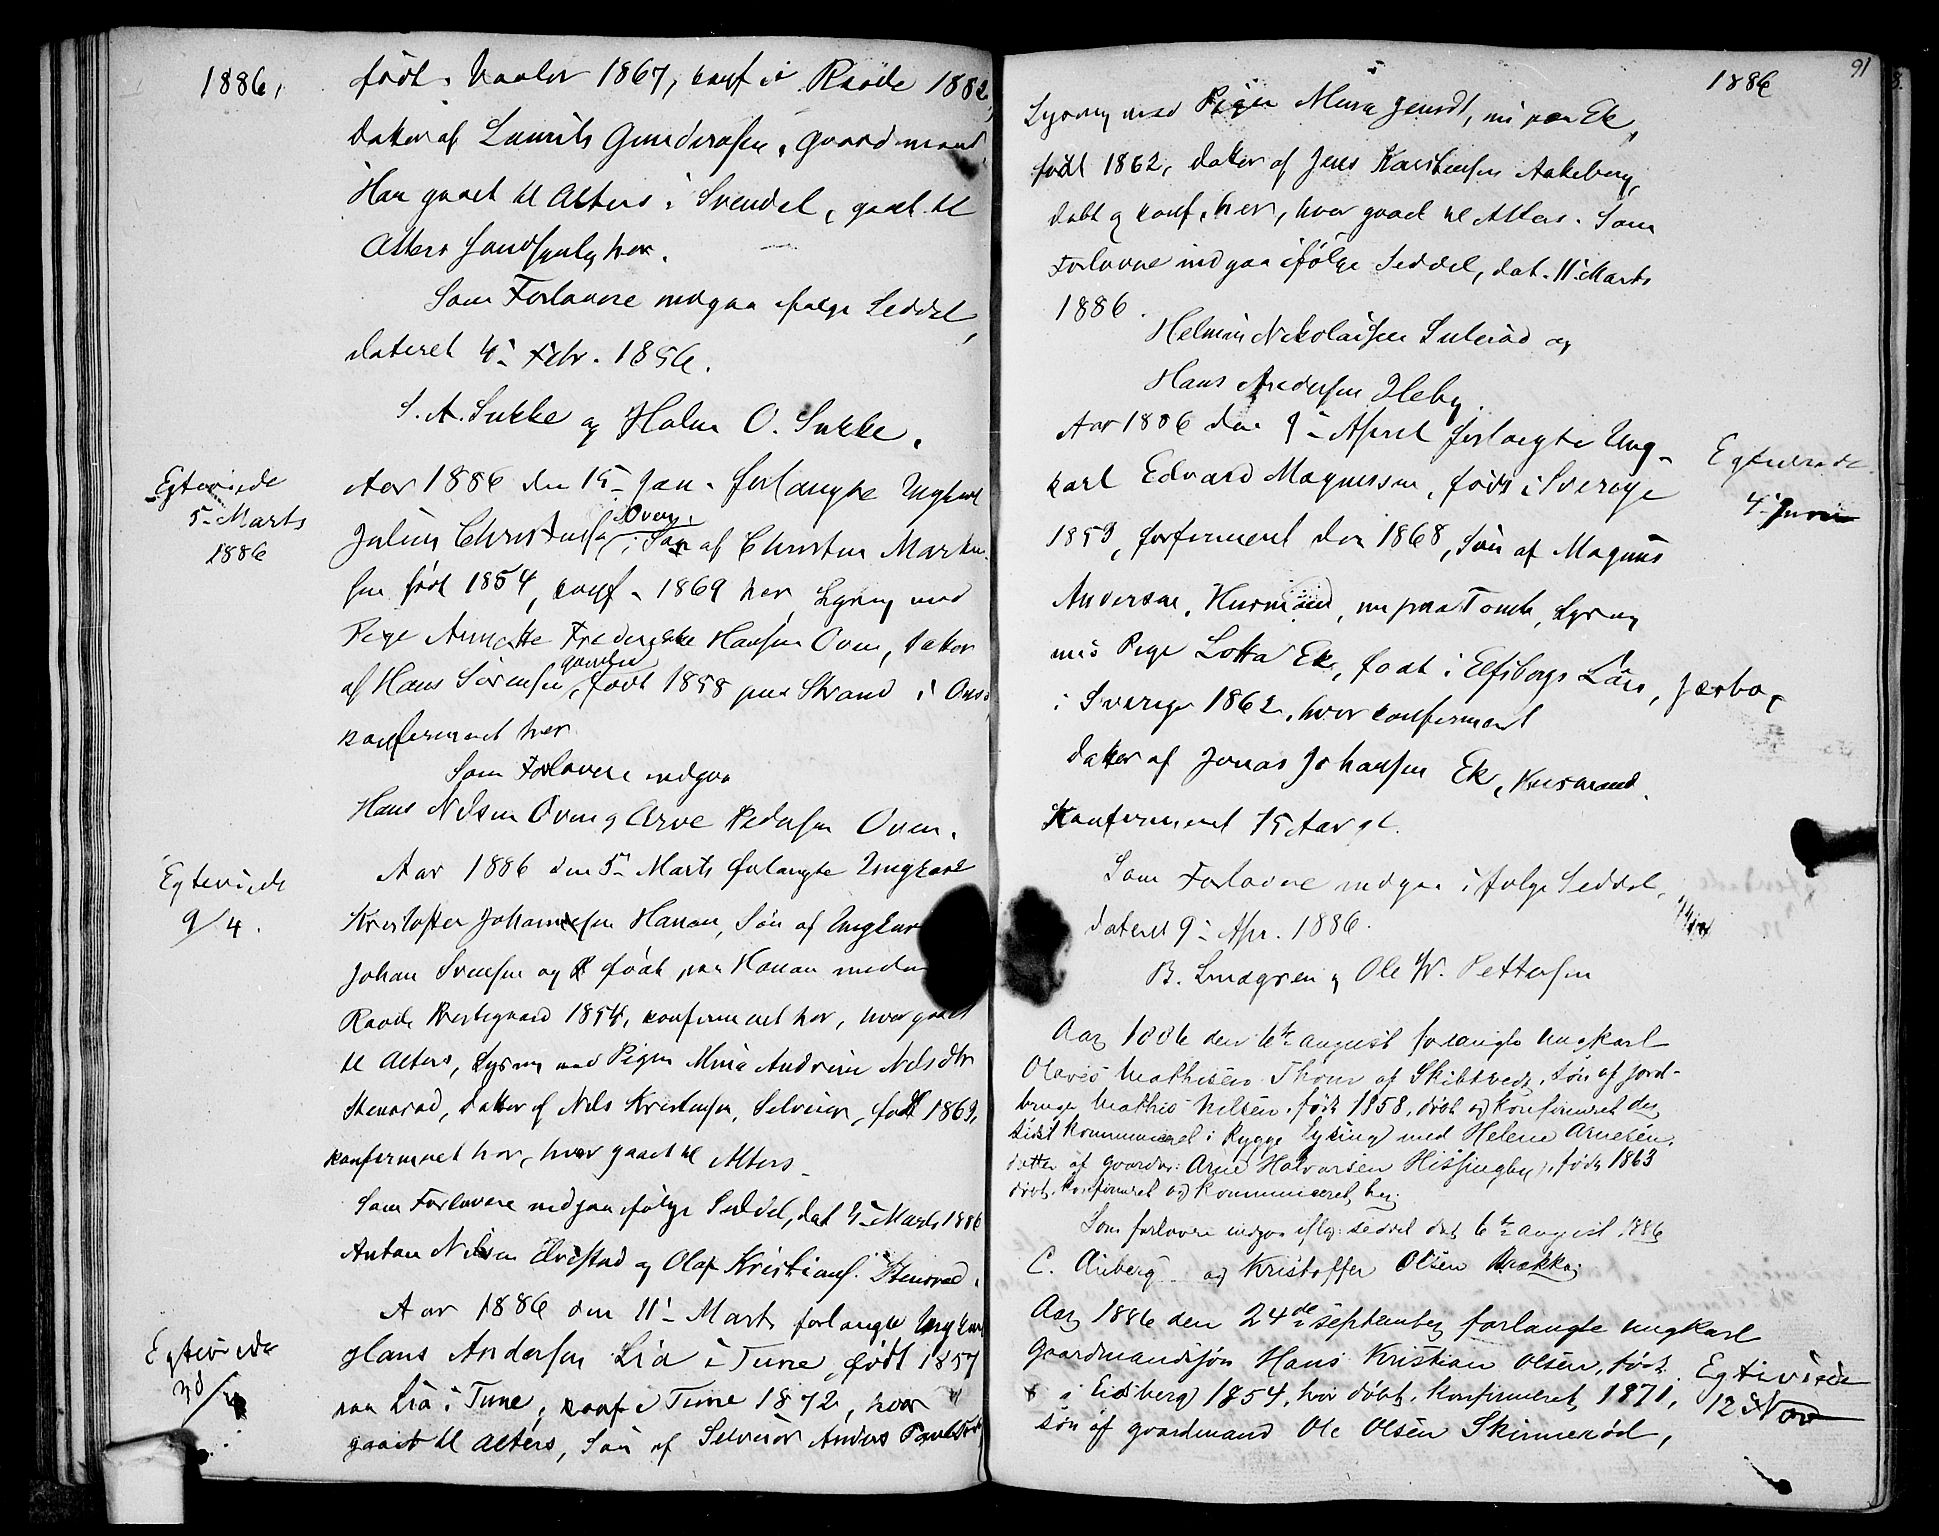 1886,
født i Vaaler 1867, conf i Raade 1882,
Datter af Laurits Gundersen, Gaardmand.
Han gaaet til Alters i Svendal, gaaet til
Alters sandsynlig her.
Som Forlovere indgaa ifølge Seddel,
dateret 4. Febr. 1856.
S. A. Sukke og Halvor O. Sukke.
Egteviede
5. Marts
1886
Aar 1886 den 15. Jan. forlangte Ungkarl
Julius Christensen Oven, Søn af Christen Marku-
sen født 1854, conf. 1869 her Lysning med
Pige Annette Frederikke Hansen Oven, Datter
af Hans Sørensen, født 1858 paa Strand i Onsø
konfirmeret her
Som Forlovere indgaa
Hans Nilsen Oven og Arve Pedersen Oven.
Egteviede
9/4.
Aar 1886 den 5. Marts forlangte Ungkarl
Kristoffer Johannesen Hanan, Søn af Ungkarl
Johan Svensen og født paa Hanan under
Raade Prestegaard 1854, konfirmeret her, hvor gaaet
til Alters, Lysning med Pigen Mina Andrine Nilsdtr
Stensrød, Datter af Nils Kristensen, Selveier, født 1863,
konfirmeret her, hvor gaaet til Alters.
Som Forlovere indgaa ifølge Seddel, dat 5. Marts 1886
Anton Nilsen Elvestad og Olaf Kristians. Stensrød.
Egteviede
/4
Aar 1886 den 11. Marts forlangte Ungkarl
Hans Andersen Lia i Tune, født 1857
paa Lia i Tune, conf i Tune 1872, hvor
gaaet til Alters, Søn af Selveier Anders
91
1886
Lysning med Pigen Jensdt, nu paa Ek,
født 1862, Datter af Jens Karstensen Aakeberg,
døbt og conf. her, hvor gaaet til Alters. Som
Forlovere indgaa ifølge Seddel, dat. 11. Marts
1886.
Helmin Nikolaisen Sulerød og
Hans Andersen Heby.
Aar 1886 den 9. April forlangte Ung-
karl Edvard Magnussen, født i Sverige
1859, confirmeret der 1868, Søn af Magnus
Andersen, Husmand, nu paa Tomb, Lysning
med Pige Lotta Ek, født i Elfsborgs Län, Jærbo,
i Sverige 1862, hvor confirmeret
Datter af Jonas Johansen Ek, Husmand.
Konfirmeret 15 Aar gl.
Som Forlovere indgaa ifølge Seddel,
dateret 9. Apr. 1886.
B. Lindgren og Ole W. Pettersen
Egteviede
4. Juni
Aar 1886 den 6te august forlangte ungkarl
Olaves Mathisen Thom af Skibtvedt, søn af jord-
bruger Mathis Nilsen, født 1858, døbt og konfirmeret der,
sidst kommuniceret i Rygge lysning med Helene Arnesen,
datter af gaardm: Arne Halvorsen Hissingby, født 1863
døbt, konfirmeret og kommuniceret her.
Som forlovere indgaa iflg: seddel dat 6te august 1886
C. Anberg og Kristoffer Olsen Brække.
Aar 1886 den 24de september forlangte ungkarl
gaardmandssøn Hans Kristian Olsen, født
i Eidsberg 1854, hvor døbt, konfirmeret 1871,
søn af gaardmand Ole Olsen Skinnerød,
Egteviede
12 Nov